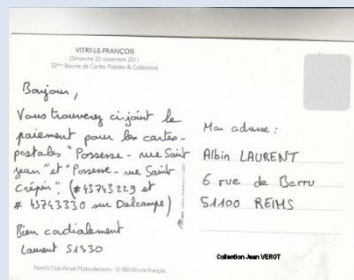 VITRY-LE-FRANÇOIS
Dimanche 20 novembre 2011
32ème Bourse de Cartes Postales & Collections
Bonjour,
Vous trouverez ci-joint le
paiement pour les cartes-
postales "Possesse - rue Saint
Jean" et "Possesse - rue Saint
Crépin". (#43743229 et
# 43743330 sur Delcampe)
Bien cordialement
Laurent 51330
Mon adresse :
Albin LAURENT
6 rue de Barru
51100 REIMS
Collection Jean VERGT
51300 Vitry-le-François